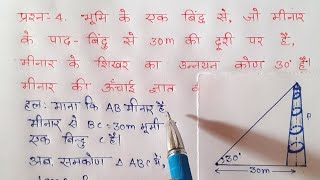 प्रश्न:- 4. भूमि के एक बिंदु से, जो मीनार
के पाद-बिंदु से 30m की दूरी पर है,
मीनार के शिखर का उन्नयन कोण 30° है।
मीनार की ऊँचाई ज्ञात
हल: माना कि AB मीनार है,
मीनार से BC = 30m भूमी
एक बिन्दु C है।
अब, समकोण △ ABC में,
30°
30m